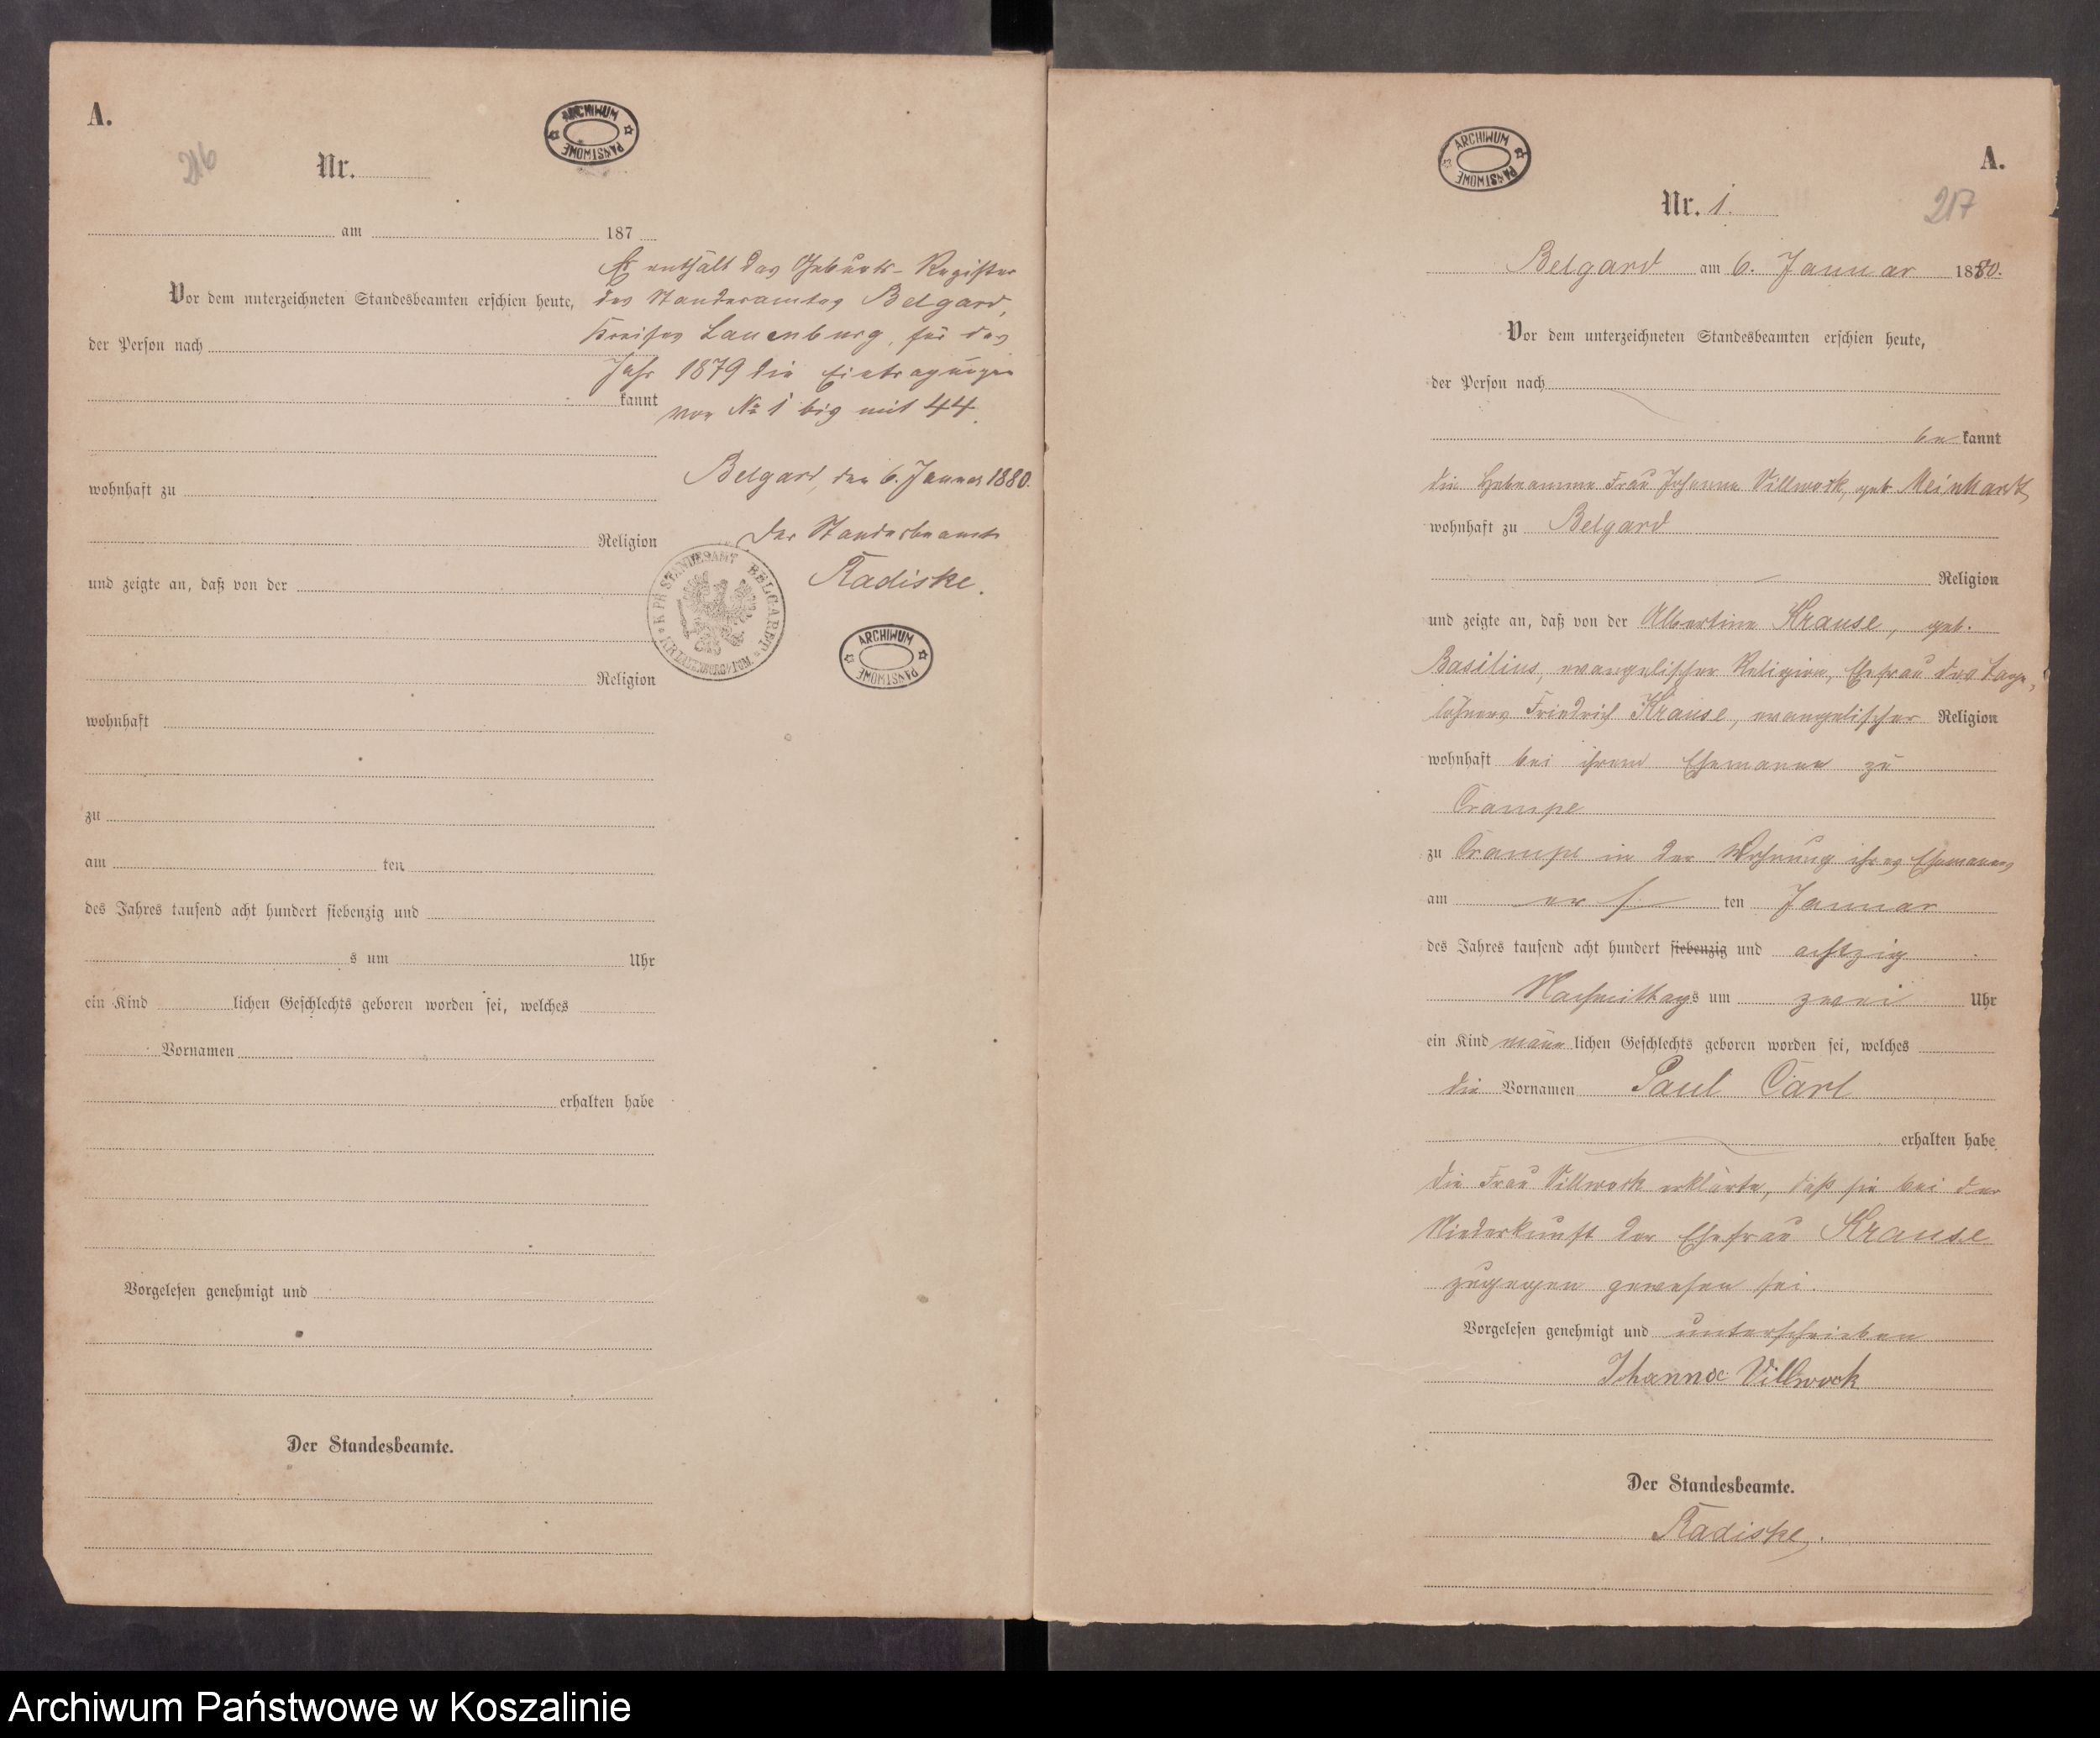 A.
216
ARCHIWUM PAŃSTWOWE
Nr.
am 187
Vor dem unterzeichneten Standesbeamten erschien heute,
der Person nach
kannt
wohnhaft zu
Religion
und zeigte an, daß von der
Religion
wohnhaft
zu
am ten
des Jahres tausend acht hundert siebenzig und
s um Uhr
ein Kind lichen Geschlechts geboren worden sei, welches
Vornamen
erhalten habe
Vorgelesen genehmigt und
Der Standesbeamte.
Es enthält das Geburts-Register
des Standesamtes Belgard,
Kreises Lauenburg, für das
Jahr 1879 die Eintragungen
von No 1 bis mit 44.
Belgard den 6. Januar 1880.
Der Standesbeamte
Radiske.
K. PR. STANDESAMT BELGARD
KR. LAUENBURG I/POM.
ARCHIWUM PAŃSTWOWE
ARCHIWUM PAŃSTWOWE
A.
Nr. 1.
217
Belgard am 6. Januar 1880.
Vor dem unterzeichneten Standesbeamten erschien heute,
der Person nach
bekannt
die Hebeamme Frau Johanna Villwock, geb. Meinhardt,
wohnhaft zu Belgard
Religion
und zeigte an, daß von der Albertine Krause, geb.
Basilius, evangelischer Religion, Ehefrau des Tage-
löhners Friedrich Krause, evangelischer Religion
wohnhaft bei ihrem Ehemanne zu
Crampe
zu Crampe in der Wohnung ihres Ehemannes
am ersten Januar
des Jahres tausend acht hundert siebenzig und achtzig
Nachmittags um zwei Uhr
ein Kind männlichen Geschlechts geboren worden sei, welches
die Vornamen Paul Carl
erhalten habe.
die Frau Villwock erklärte, daß sie bei der
Niederkunft der Ehefrau Krause
zugegen gewesen sei.
Vorgelesen genehmigt und unterschrieben
Johanna Villwock
Der Standesbeamte.
Radiske.
Archiwum Państwowe w Koszalinie